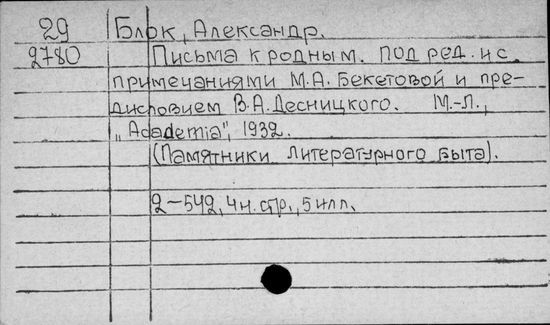 29 Блок, Александр.
2780 Письма к родным. Под ред. и с
примечаниями М.А. Бекетовой и пре-
дисловием В.А. Десницкого. М.-Л.,
„Academia", 1932.
(Памятники литературного быта).
2-542, 4 н. стр., 5 илл.